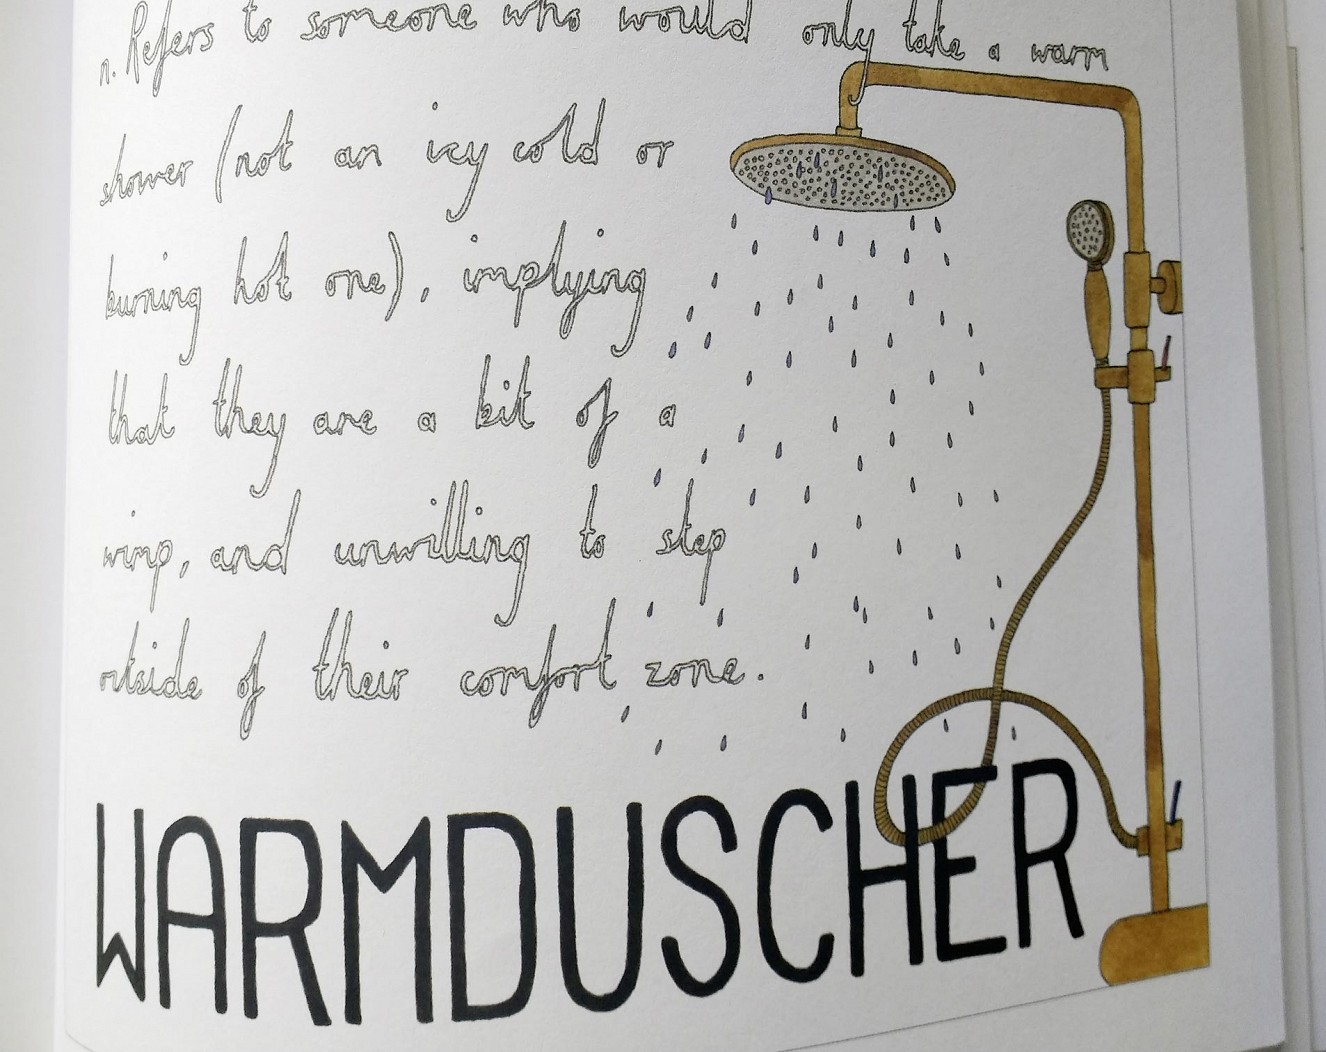 n. Refers to someone who would only take a warm
shower (not an icy cold or
burning hot one), implying
that they are a bit of a
wimp, and unwilling to step
outside of their comfort zone.
WARMDUSCHER